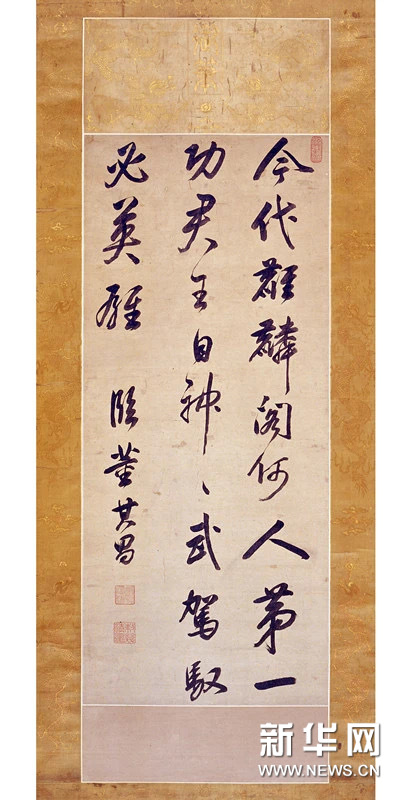 今代麒麟閣何人第一
功君王自神、武駕馭
必英雄 臨董其昌
新华网
WWW.NEWS.CN